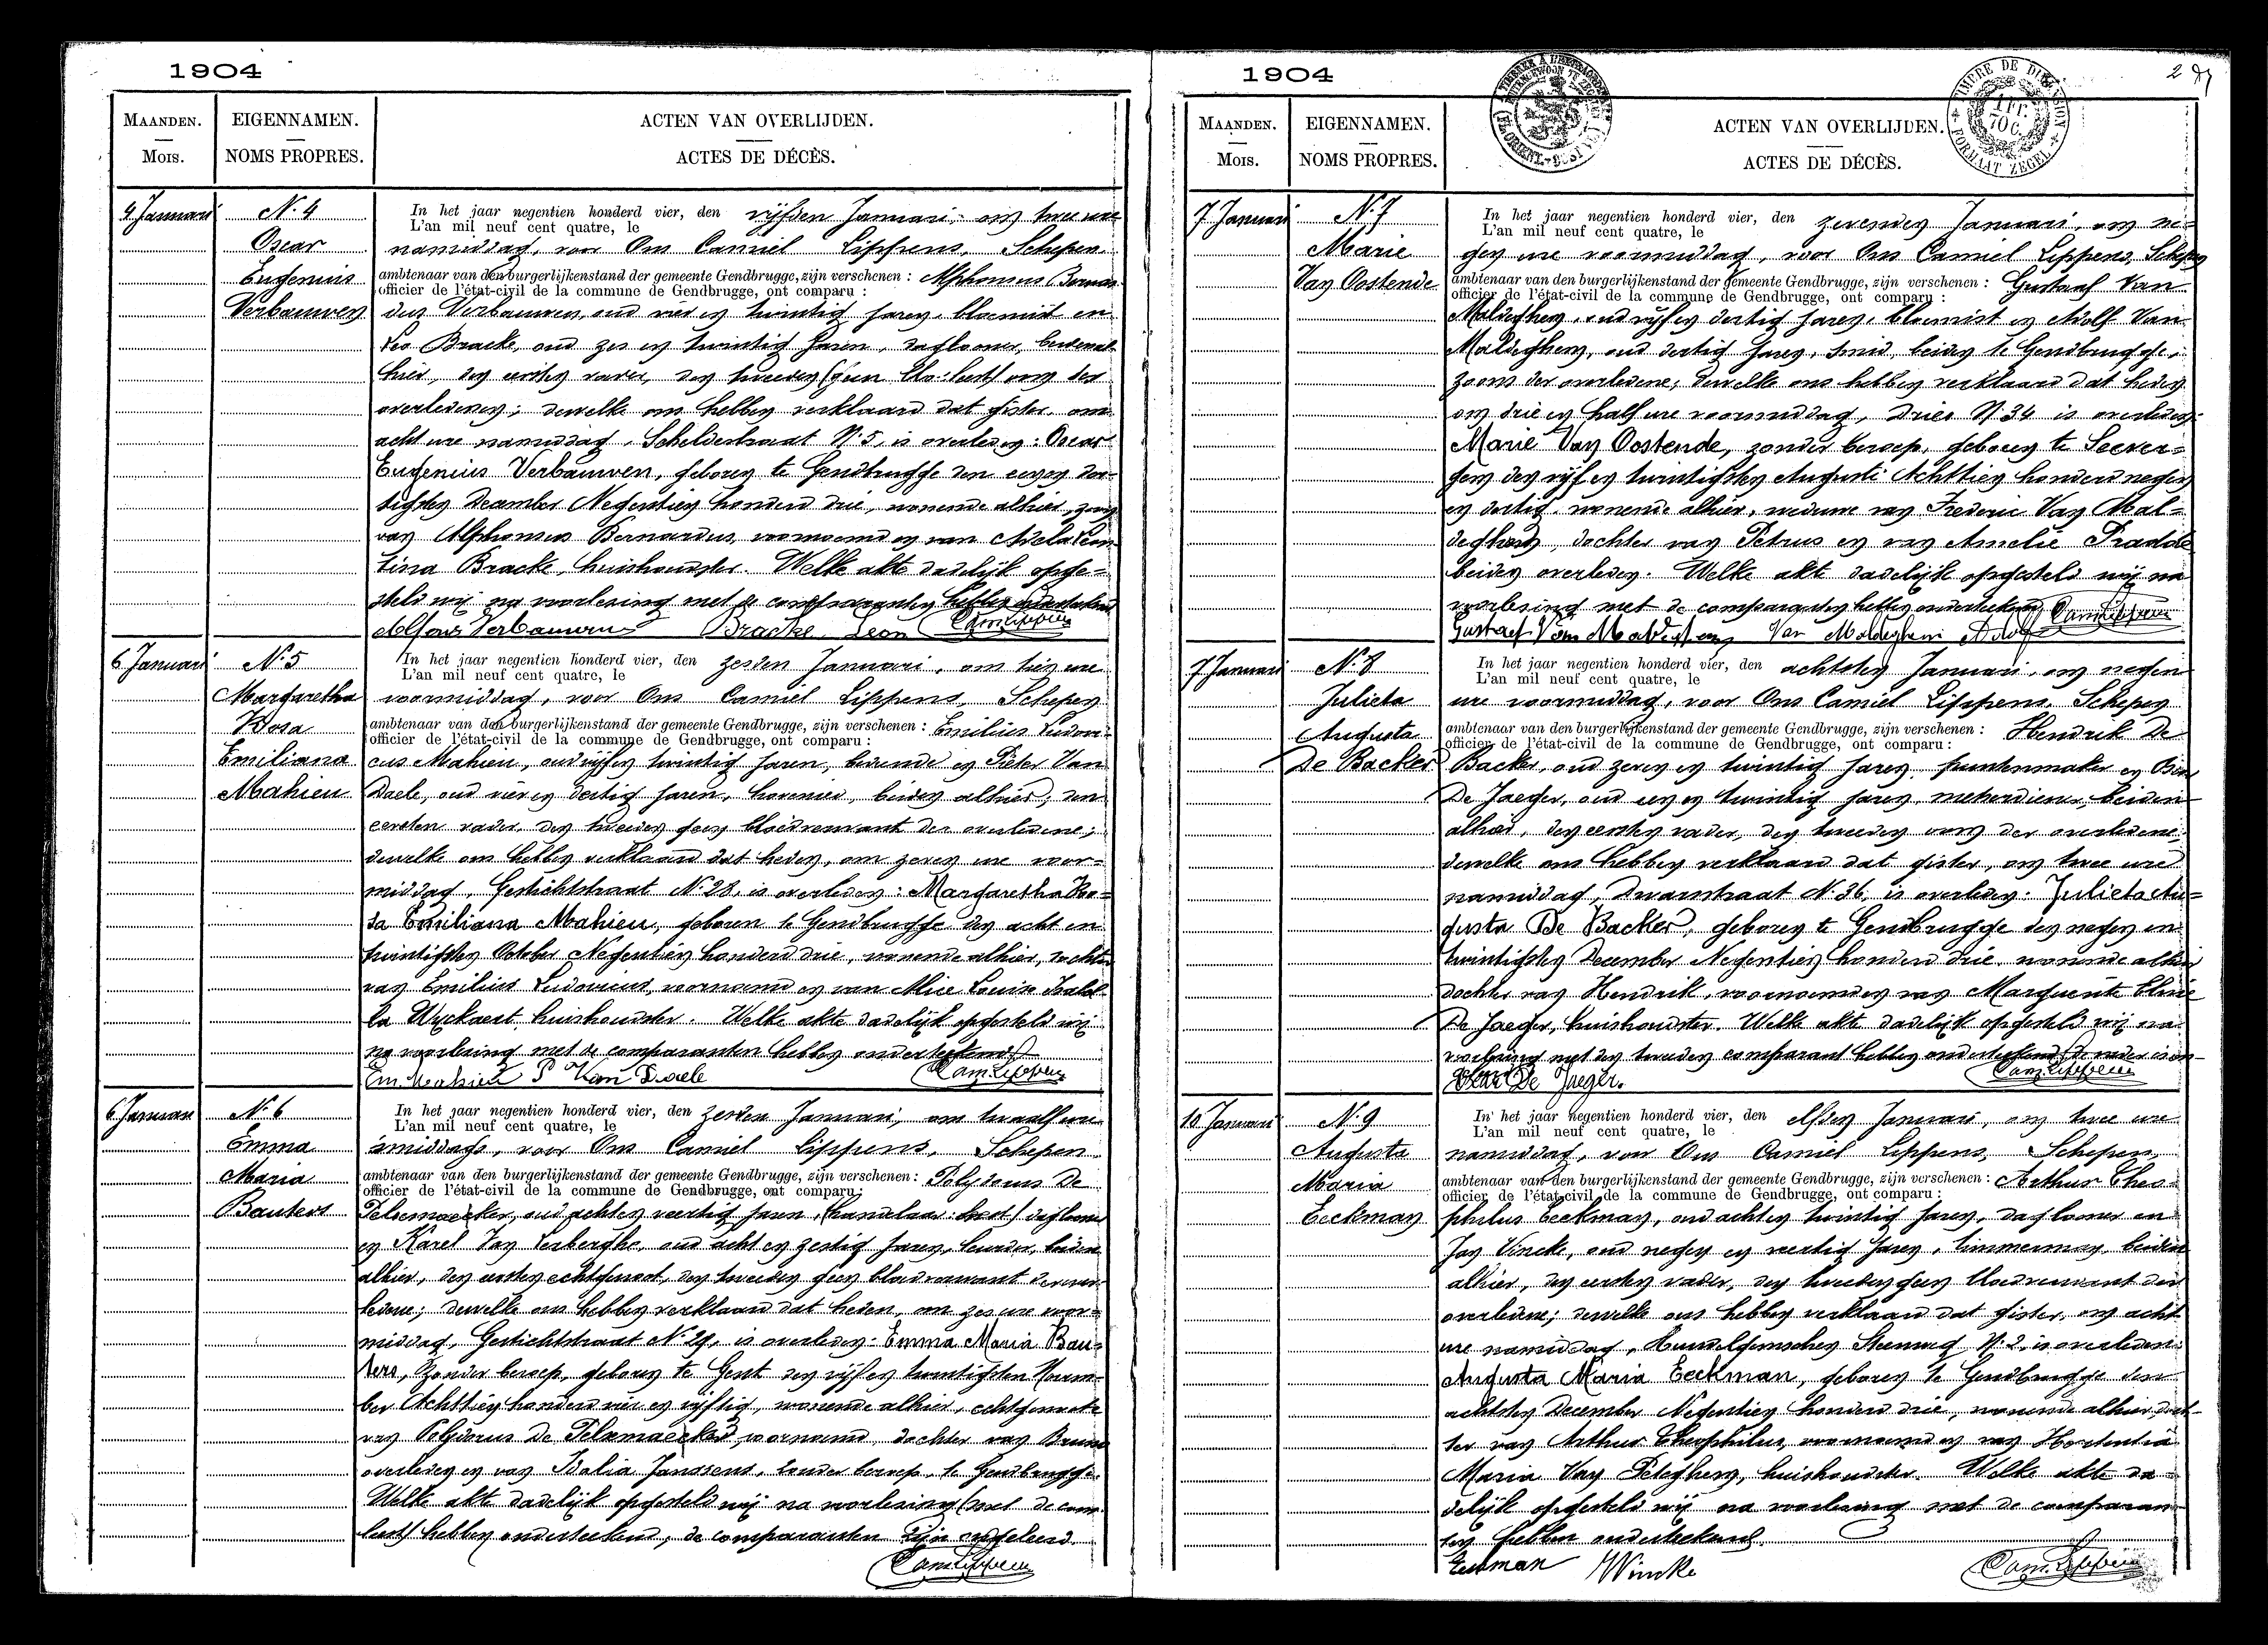 1904
MAANDEN.
Mois.
EIGENNAMEN.
NOMS PROPRES.
ACTEN VAN OVERLIJDEN.
ACTES DE DÉCÈS.
4 Januari
N. 4
Oscar
Eugenius
Verbauwen
In het jaar negentien honderd vier, den vijfden Januari, om twee ure
L'an mil neuf cent quatre, le
namiddag, voor Ons Camiel Lippens, Schepen
ambtenaar van den burgerlijkenstand der gemeente Gendbrugge, zijn verschenen : Alphonsus Bernar-
officier de l'état-civil de la commune de Gendbrugge, ont comparu :
dus Verbauwen, oud vier en twintig jaren, bloemist en
Leo Bracke, oud zes en twintig jaren, daglooner, beiden al-
hier, den eersten vader, den tweeden (geen bloed: leest) oom des
overledenen; dewelke ons hebben verklaard dat gister, om
acht ure namiddag, Scheldestraat N. 5, is overleden: Oscar
Eugenius Verbauwen, geboren te Gendbrugge den eenen der-
tigsten December Negentien honderd drie, wonende alhier, zoon
van Alphonsus Bernardus, voornoemd en van Adela Leon-
tina Bracke, huishoudster. Welke akte dadelijk opge-
steld wij na voorlesing met de comparanten hebben onderteekend
Alfons Verbauwen Bracke Leon Cam. Lippens
6 Januari
N. 5
Margaretha
Rosa
Emiliana
Mahieu
In het jaar negentien honderd vier, den zesden Januari, om tien ure
L'an mil neuf cent quatre, le
voormiddag, voor Ons Camiel Lippens, Schepen
ambtenaar van den burgerlijkenstand der gemeente Gendbrugge, zijn verschenen : Emilius Ludovi-
officier de l'état-civil de la commune de Gendbrugge, ont comparu :
cus Mahieu, oud vijf en twintig jaren, bediende en Pieter Van
Daele, oud vier en dertig jaren, hovenier, beiden alhier, den
eersten vader, den tweeden geen bloedverwant der overledene;
dewelke ons hebben verklaard dat heden, om zeven ure voor-
middag, Gestichtstraat N. 28, is overleden: Margaretha Ro-
sa Emiliana Mahieu, geboren te Gendbrugge den acht en
twintigsten October Negentien honderd drie, wonende alhier, dochter
van Emilius Ludovicus, voornoemd en van Alice Louise Isabel-
la Wyckaert, huishoudster. Welke akte dadelijk opgesteld wij
na voorlesing met de comparanten hebben onderteekend
Em Mahieu P Van Daele Cam. Lippens
6 Januari
N. 6
Emma
Maria
Bauters
In het jaar negentien honderd vier, den zesden Januari, om twaalf ure
L'an mil neuf cent quatre, le
smiddags, voor Ons Camiel Lippens, Schepen
ambtenaar van den burgerlijkenstand der gemeente Gendbrugge, zijn verschenen : Polydorus De
officier de l'état-civil de la commune de Gendbrugge, ont comparu :
Pelsemaecker, oud acht en veertig jaren, (handelaar: leest) daglooner
en Karel Van Lerberghe, oud acht en zestig jaren, leurder, beiden
alhier, den eersten echtgenoot, den tweeden geen bloedverwant der over-
ledene; dewelke ons hebben verklaard dat heden, om zes ure voor-
middag, Gestichtstraat N. 29, is overleden: Emma Maria Bau-
ters, zonder beroep, geboren te Gent den vijf en twintigsten Novem-
ber Achttien honderd vier en vijftig, wonende alhier, echtgenoote
van Polydorus De Pelsmaecker, voornoemd, dochter van Bruno
overleden en van Idalia Janssens, zonder beroep, te Gendbrugge.
Welke akte dadelijk opgesteld wij na voorlesing (met de com:
leest) hebben onderteekend, de comparanten zijn ongeleerd.
Cam. Lippens
1904
2
MAANDEN.
Mois.
EIGENNAMEN.
NOMS PROPRES.
ACTEN VAN OVERLIJDEN.
ACTES DE DÉCÈS.
TIMBRE DE DIMENSION
FORMAAT ZEGEL
7 Januari
N. 7
Marie
Van Oostende
In het jaar negentien honderd vier, den zevenden Januari, om ne-
L'an mil neuf cent quatre, le
gen ure voormiddag, voor Ons Camiel Lippens, Schepen
ambtenaar van den burgerlijkenstand der gemeente Gendbrugge, zijn verschenen : Gustaaf Van
officier de l'état-civil de la commune de Gendbrugge, ont comparu :
Maldeghem, oud vijf en dertig jaren, bloemist en Adolf Van
Maldeghem, oud dertig jaren, smid, beiden te Gendbrugge,
zoons der overledene; dewelke ons hebben verklaard dat heden
om drie en half ure voormiddag, Dries N. 34 is overleden:
Marie Van Oostende, zonder beroep, geboren te Seever-
gem den vijf en twintigsten Augusti Achttien honderd negen
en dertig, wonende alhier, weduwe van Frederic Van Mal-
deghem, dochter van Petrus en van Amelie Pradde
beiden overleden. Welke akt dadelijk opgesteld wij na
voorlesing met de comparanten hebben onderteekend
Gustaef Van Maldeghem Van Maldeghem Adolf Cam. Lippens
7 Januari
N. 8
Julieta
Augusta
De Backer
In het jaar negentien honderd vier, den achtsten Januari, om negen
L'an mil neuf cent quatre, le
ure voormiddag, voor Ons Camiel Lippens, Schepen
ambtenaar van den burgerlijkenstand der gemeente Gendbrugge, zijn verschenen : Hendrik De
officier de l'état-civil de la commune de Gendbrugge, ont comparu :
Backer, oud zeven en twintig jaren, puntenmaker en
De Jaeger, oud een en twintig jaren, metserdiener, beiden
alhier, den eersten vader, den tweeden oom der overledene;
dewelke ons hebben verklaard dat gister, om twee ure
namiddag, Dwarsstraat N. 36, is overleden: Julieta Au-
gusta De Backer, geboren te Gendbrugge den negen en
twintigsten December Negentien honderd drie, wonende alhier
dochter van Hendrik, voornoemd en van Marguerite
De Jaeger, huishoudster. Welke akte dadelijk opgesteld wij na
voorlesing met den tweeden comparant hebben onderteekend, de vader is on-
De Jaeger. Cam. Lippens
10 Januari
N. 9
Augusta
Maria
Eeckman
In het jaar negentien honderd vier, den elfden Januari, om twee ure
L'an mil neuf cent quatre, le
namiddag, voor Ons Camiel Lippens, Schepen
ambtenaar van den burgerlijkenstand der gemeente Gendbrugge, zijn verschenen : Arthur Theo-
officier de l'état-civil de la commune de Gendbrugge, ont comparu :
philus Eeckman, oud acht en twintig jaren, daglooner en
Jan Vincke, oud negen en veertig jaren, timmerman, beiden
alhier, den eersten vader, den tweeden geen bloedverwant der
overledene; dewelke ons hebben verklaard dat gister, om acht
ure namiddag, Hundelgemschen Steenweg N. 2, is overleden:
Augusta Maria Eeckman, geboren te Gendbrugge den
achtsten December Negentien honderd drie, wonende alhier, doch-
ter van Arthur Theophilus, voornoemd en van Hortentia
Maria Van Peteghem, huishoudster. Welke akte da-
delijk opgesteld wij na voorlesing met de comparan-
ten hebben onderteekend.
Eeckman JVincke Cam. Lippens